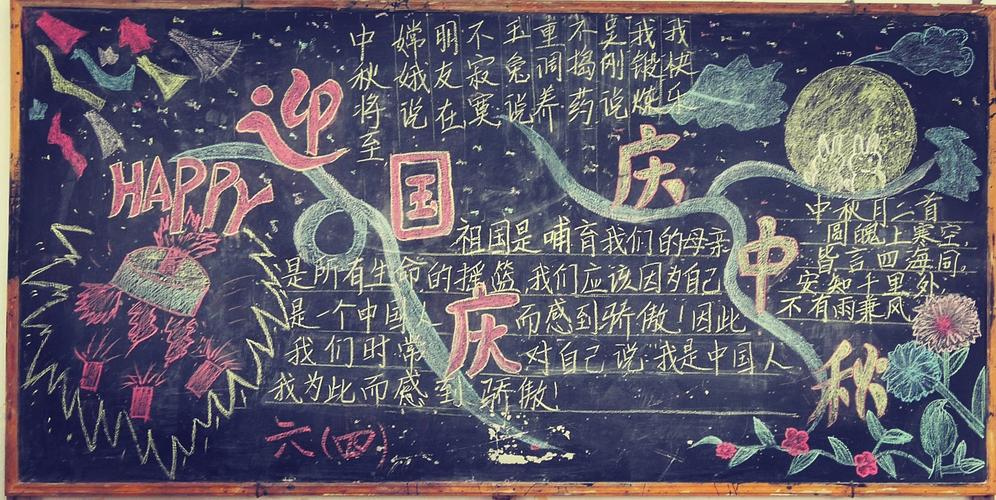 HAPPY
迎国庆
庆中秋
中秋将至
嫦娥说
明友在
不寂寞
玉兔说
重调养
不捣药
吴刚说
我锻炼
我快乐
祖国是哺育我们的母亲
是所有生命的摇篮,我们应该因为自己
是一个中国人而感到骄傲!因此
我们时常对自己说:我是中国人
我为此而感到骄傲!
中秋月二首
圆魄上寒空,
皆言四海同。
安知千里外,
不有雨兼风。
六(四)